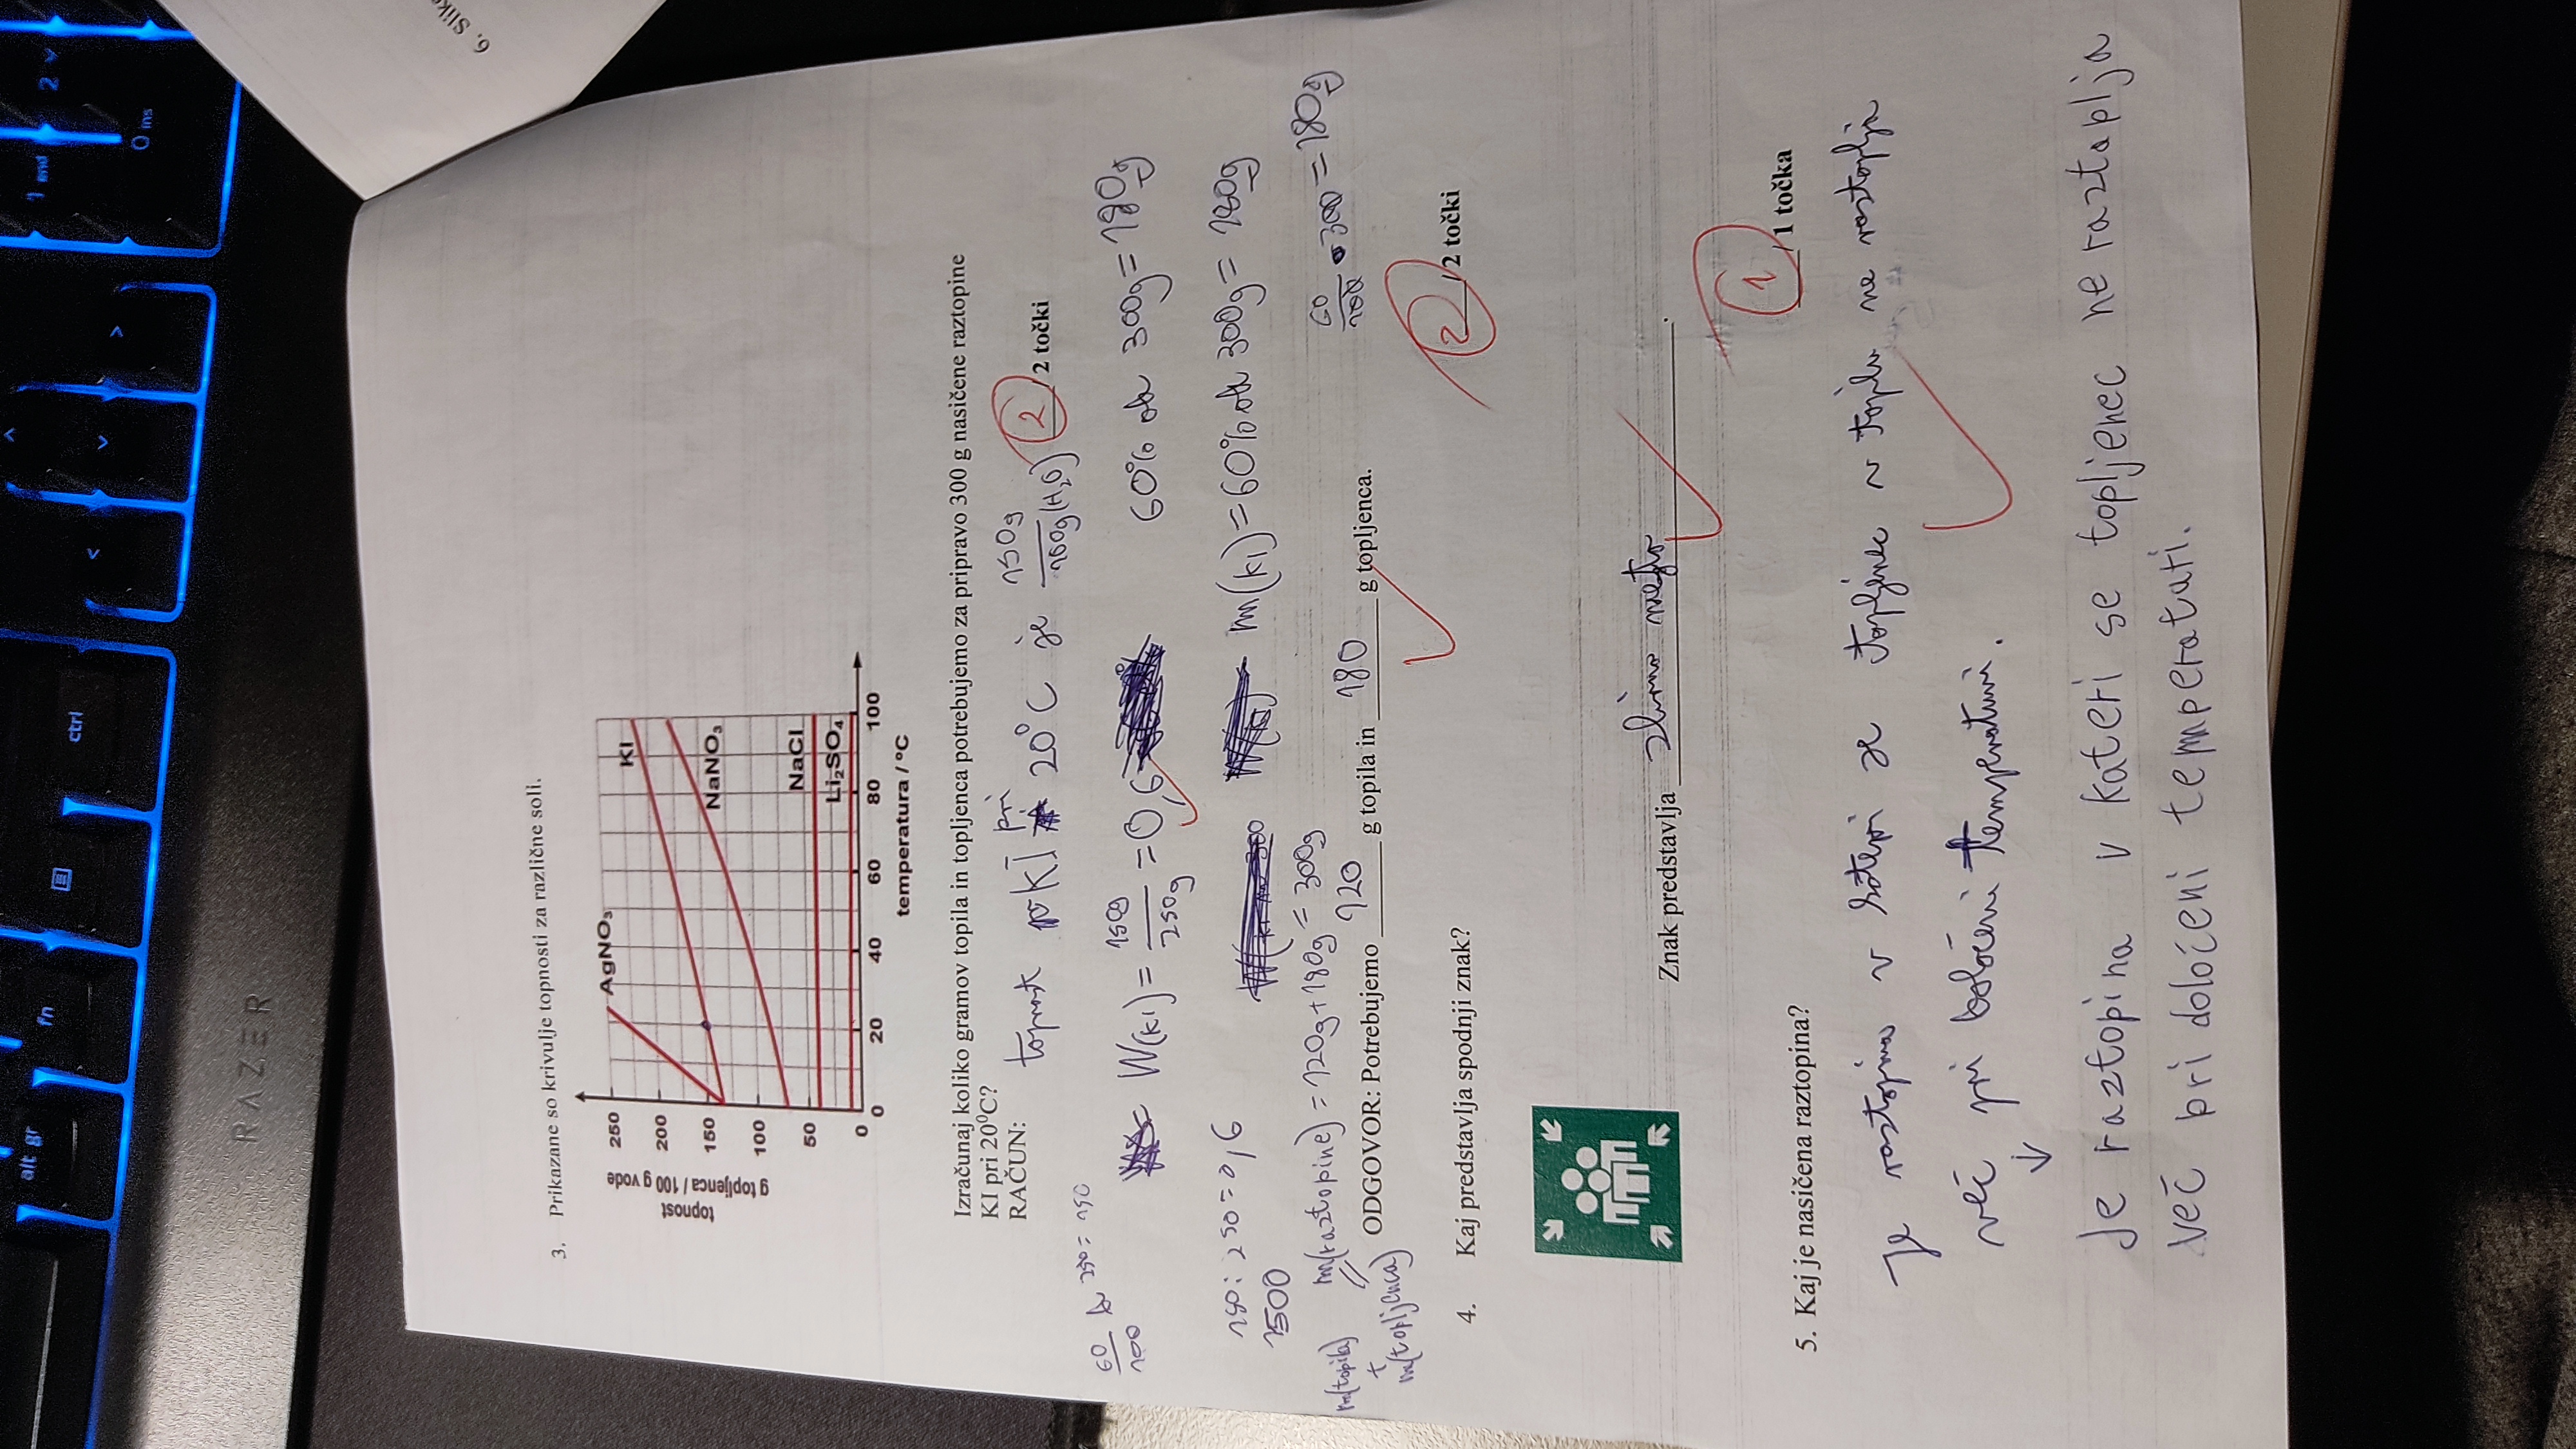 alt gr
fn
ctrl
1 end
2
0 ins
RAZER
6. Slik
3. Prikazane so krivulje topnosti za različne soli.
topnost
g topljenca / 100 g vode
250
200
150
100
50
0
AgNO₃
KI
NaNO₃
NaCl
Li₂SO₄
0 20 40 60 80 100
temperatura / °C
Izračunaj koliko gramov topila in topljenca potrebujemo za pripravo 300 g nasičene raztopine
KI pri 20⁰C?
RAČUN:
topnost KI pri 20°C je 150g/100g(H₂O)
2 / 2 točki
60/100 250 = 150
W(KI) = 150g/250g = 0,6
60% od 300g = 180g
150 : 250 = 0,6
1500
m(KI) = 60% od 300g = 180g
m(raztopine) = 120g + 180g = 300g
60/100 • 300 = 180g
m(topila)
+
m(topljenca)
ODGOVOR: Potrebujemo 120 g topila in 180 g topljenca.
4. Kaj predstavlja spodnji znak?
2 / 2 točki
Znak predstavlja zbirno mesto.
1 / 1 točka
5. Kaj je nasičena raztopina?
Je raztopina v kateri se topljenec v topilu ne raztaplja
več pri določeni temperaturi.
Je raztopina v kateri se topljenec ne raztaplja
več pri določeni temperaturi.